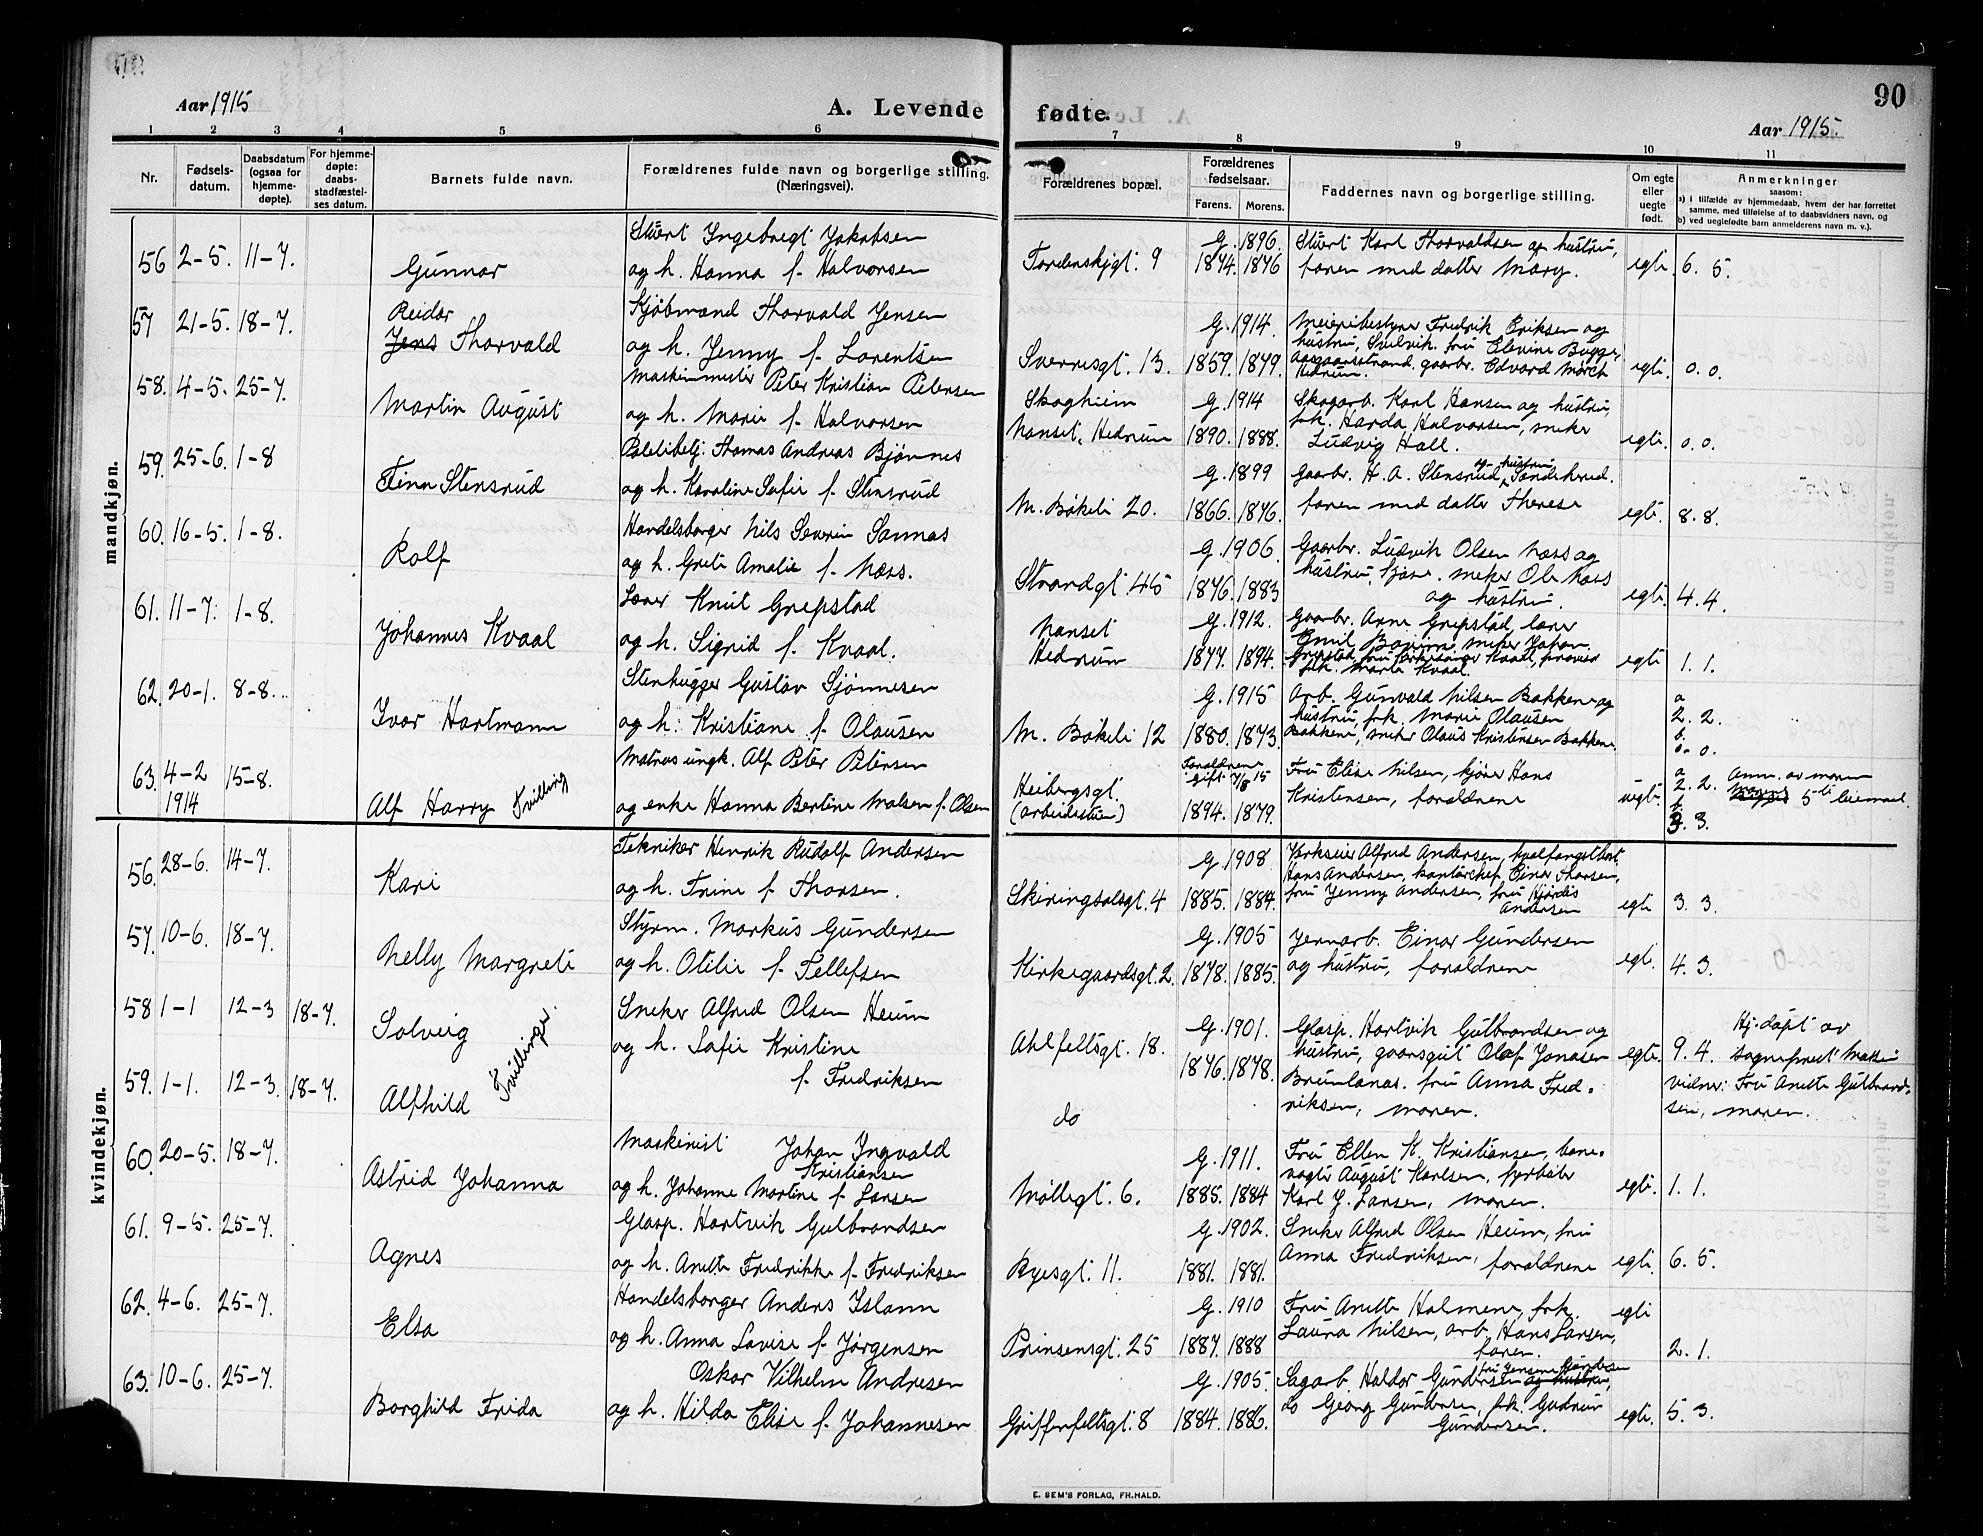 90
Aar 1915
A. Levende
fødte.
Aar 1915.
1 2 3 4 5 6 7 8 9 10 11
Nr.
Fødsels-
datum.
Daabsdatum
(ogsaa for
hjemme-
døpte).
For hjemme-
døpte:
daabs-
stadfæstel-
ses datum.
Barnets fulde navn.
Forældrenes fulde navn og borgerlige stilling.
(Næringsvei).
Forældrenes bopæl.
Forældrenes
fødselsaar.
Farens. Morens.
Faddernes navn og borgerlige stilling.
Om egte
eller
uegte
født.
Anmerkninger
saasom:
a) i tilfælde av hjemmedaab, hvem der har forrettet
samme, med tilføielse af to daabsvidners navn, og
b) ved uegtefødte barn anmelderens navn m. v.).
mandkjøn.
Stuert Ingebregt Jakobsen
56 2-5. 11-7. Gunnar og h. Hanna f. Halvorsen
Tordenskjgt. 9
G. 1896.
1874. 1876
Stuert Karl Thorvaldsen og hustru,
faren med datter Mary.
egte. 6. 5.
57 21-5. 18-7. Reidar
Jens Thorvald
Kjøbmand Thorvald Jensen
og h. Jenny f. Lorentsen
Sverresgt. 13.
G. 1914.
1859. 1879.
Meieribestyrer Fredrik Eriksen og
hustru, Svelvik. fru Elevine Bugge,
Aasgaarstrand, gaarbr. Edvard Mörch
Hedrum.
egte. 0. 0.
58. 4-5. 25-7. Martin August
Maskinmester Peter Kristian Petersen
og h. Marie f. Halvorsen
Skogheim
Nanset, Hedrum
G. 1914
1890. 1888.
Skogarb. Karl Hansen og hustru,
frk. Harda Halvorsen, snekr
Ludvig Hall.
egte. 0. 0.
59. 25-6. 1-8 Finn Stensrud
Thomas Andreas Bjönnes
og h. Karoline Sofie f. Stensrud
M. Bökeli 20.
G. 1899
1866. 1876.
Gaarbr. H. A. Stensrud og hustru, Sandeherred.
faren med datter Therese
egte. 8. 8.
60. 16-5. 1-8. Rolf
Handelsborger Nils Severin Sannas
og h. Grete Amalie f. Næss.
Strandgt. 45
G. 1906
1876. 1883
Gaarbr. Ludvik Olsen Næss og
hustru, Tjöme. snekr Ole Næss
og hustru.
egte. 4. 4.
61. 11-7. 1-8. Johannes Kvaal
Lærer Knut Grepstad
og h. Sigrid f. Kvaal.
Nanset
Hedrum
G. 1912.
1877. 1894.
Gaarbr. Arne Grepstad, lærer
Emil snekr Johan
Grepstad, fru Kvaal,
frk. Marta Kvaal.
egte 1. 1.
62. 20-1. 8-8. Ivar Hartmann
Stenhugger Gustav Sjönnesen
og h. Kristiane f. Olausen
M. Bökeli 12
G. 1915
1880. 1873.
Arb. Gunvald Nilsen Bakkene og
hustru, frk. Marie Olausen
Bakkene, snekr Olaus Kristensen Bakkene.
a
2. 2.
b.
0. 0.
63. 4-2
1914
15-8. Alf Harry Tvilling
Matros ungk. Alf Peter Petersen
og enke Hanna Bertine Malsen f. Olsen
Heibergsgt.
(arbeidsstuen)
Forældrene
gift 7/8 15
1894. 1879.
Fru Elise Nilsen, kjörer Hans
Kristensen, forældrene
uegte.
a
2. 2.
b.
3. 3.
Anm. av moren
5te leiermaal.
kvindekjøn.
56. 28-6. 14-7. Kari
Tekniker Henrik Rudolf Andersen
og h. Trine f. Thorsen.
Skiringsalsgt. 4
G. 1908
1885. 1884.
Verkseier Alfred Andersen, hvalfangstbest.
Hans Andersen, kontorchef Einar Thorsen,
fru Jenny Andersen, fru Hjördis
Andersen
egte 3. 3.
57. 10-6. 18-7. Nelly Margrete
Styrm. Markus Gundersen
og h. Otilie f. Tellefsen
Kirkegaardsgt. 2.
G. 1905
1878. 1885.
Jernarb. Einar Gundersen
og hustru, forældrene
egte. 4. 3.
58 1-1 12-3 18-7. Solveig
Tvillinger.
Snekr Alfred Olsen Heum
og h. Sofie Kristine
f. Fredriksen
Ahlfeltsgt. 18.
G. 1901.
1876. 1878.
Glasp. Hartvik Gulbrandsen og
hustru, gaarsgut Olaf Jonasen
Brunlanæs. fru Anna Fred-
riksen, moren.
egte. 9. 4.
Hj.döpt av
sogneprest
vidner: Fru Anette Gulbrand-
sen, moren.
59. 1-1. 12-3. 18-7. Alfhild
do
60. 20-5. 18-7. Astrid Johanna
Maskinist Johan Ingvald
Kristiansen
og h. Johanne Martine f. Larsen
Möllegt. 6.
G. 1911.
1885. 1884
Fru Ellen K. Kristiansen, bane-
vogter August Karlsen, fyrböter
Karl J. Larsen, moren.
egte. 1. 1.
61. 9-5. 25-7. Agnes
Glasp. Hartvik Gulbrandsen
og h. Anette Fredrikke f. Fredriksen
Ryesgt. 11.
G. 1902.
1881. 1881.
Snekr Alfred Olsen Heum, fru
Anna Fredriksen, forældrene
egte. 6. 5.
62. 4-6. 25-7. Elsa
Handelsborger Anders Islann
og h. Anna Lovise f. Jörgensen
Prinsensgt. 25
G. 1910
1887. 1888
Fru Anette Holmene, frk.
Laura Nilsen, arb. Hans Larsen,
faren.
egte
2. 1.
63. 10-6. 25-7. Borghild Frida
Oskar Vilhelm Andresen
og h. Hilda Elise f. Johannesen
Griffenfeltsgt. 8
G. 1905.
1884. 1886.
Sagarb. Haldor Gundersen og hustru,
fru Jensine Gundersen
do Georg Gundersen, frk. Gudrun
Gundersen.
egte. 5. 3.
E. SEM'S FORLAG, FR.HALD.